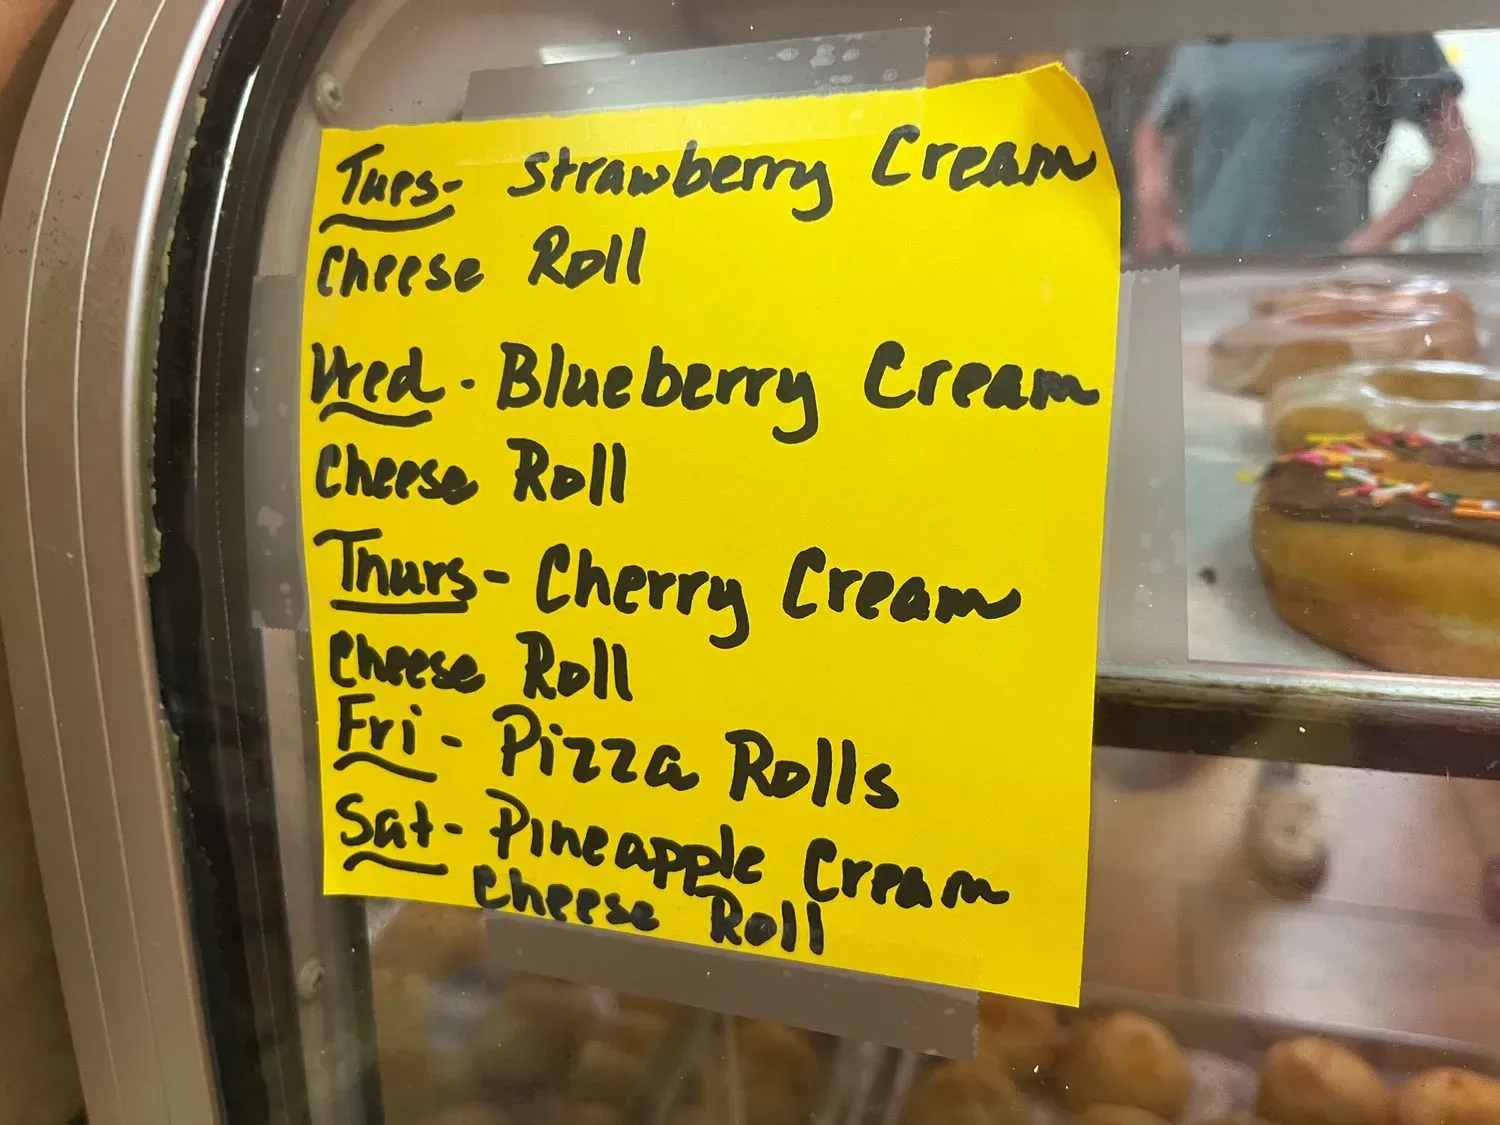 Tues- Strawberry Cream
Cheese Roll
Wed - Blueberry Cream
Cheese Roll
Thurs - Cherry Cream
Cheese Roll
Fri - Pizza Rolls
Sat - Pineapple Cream
Cheese Roll